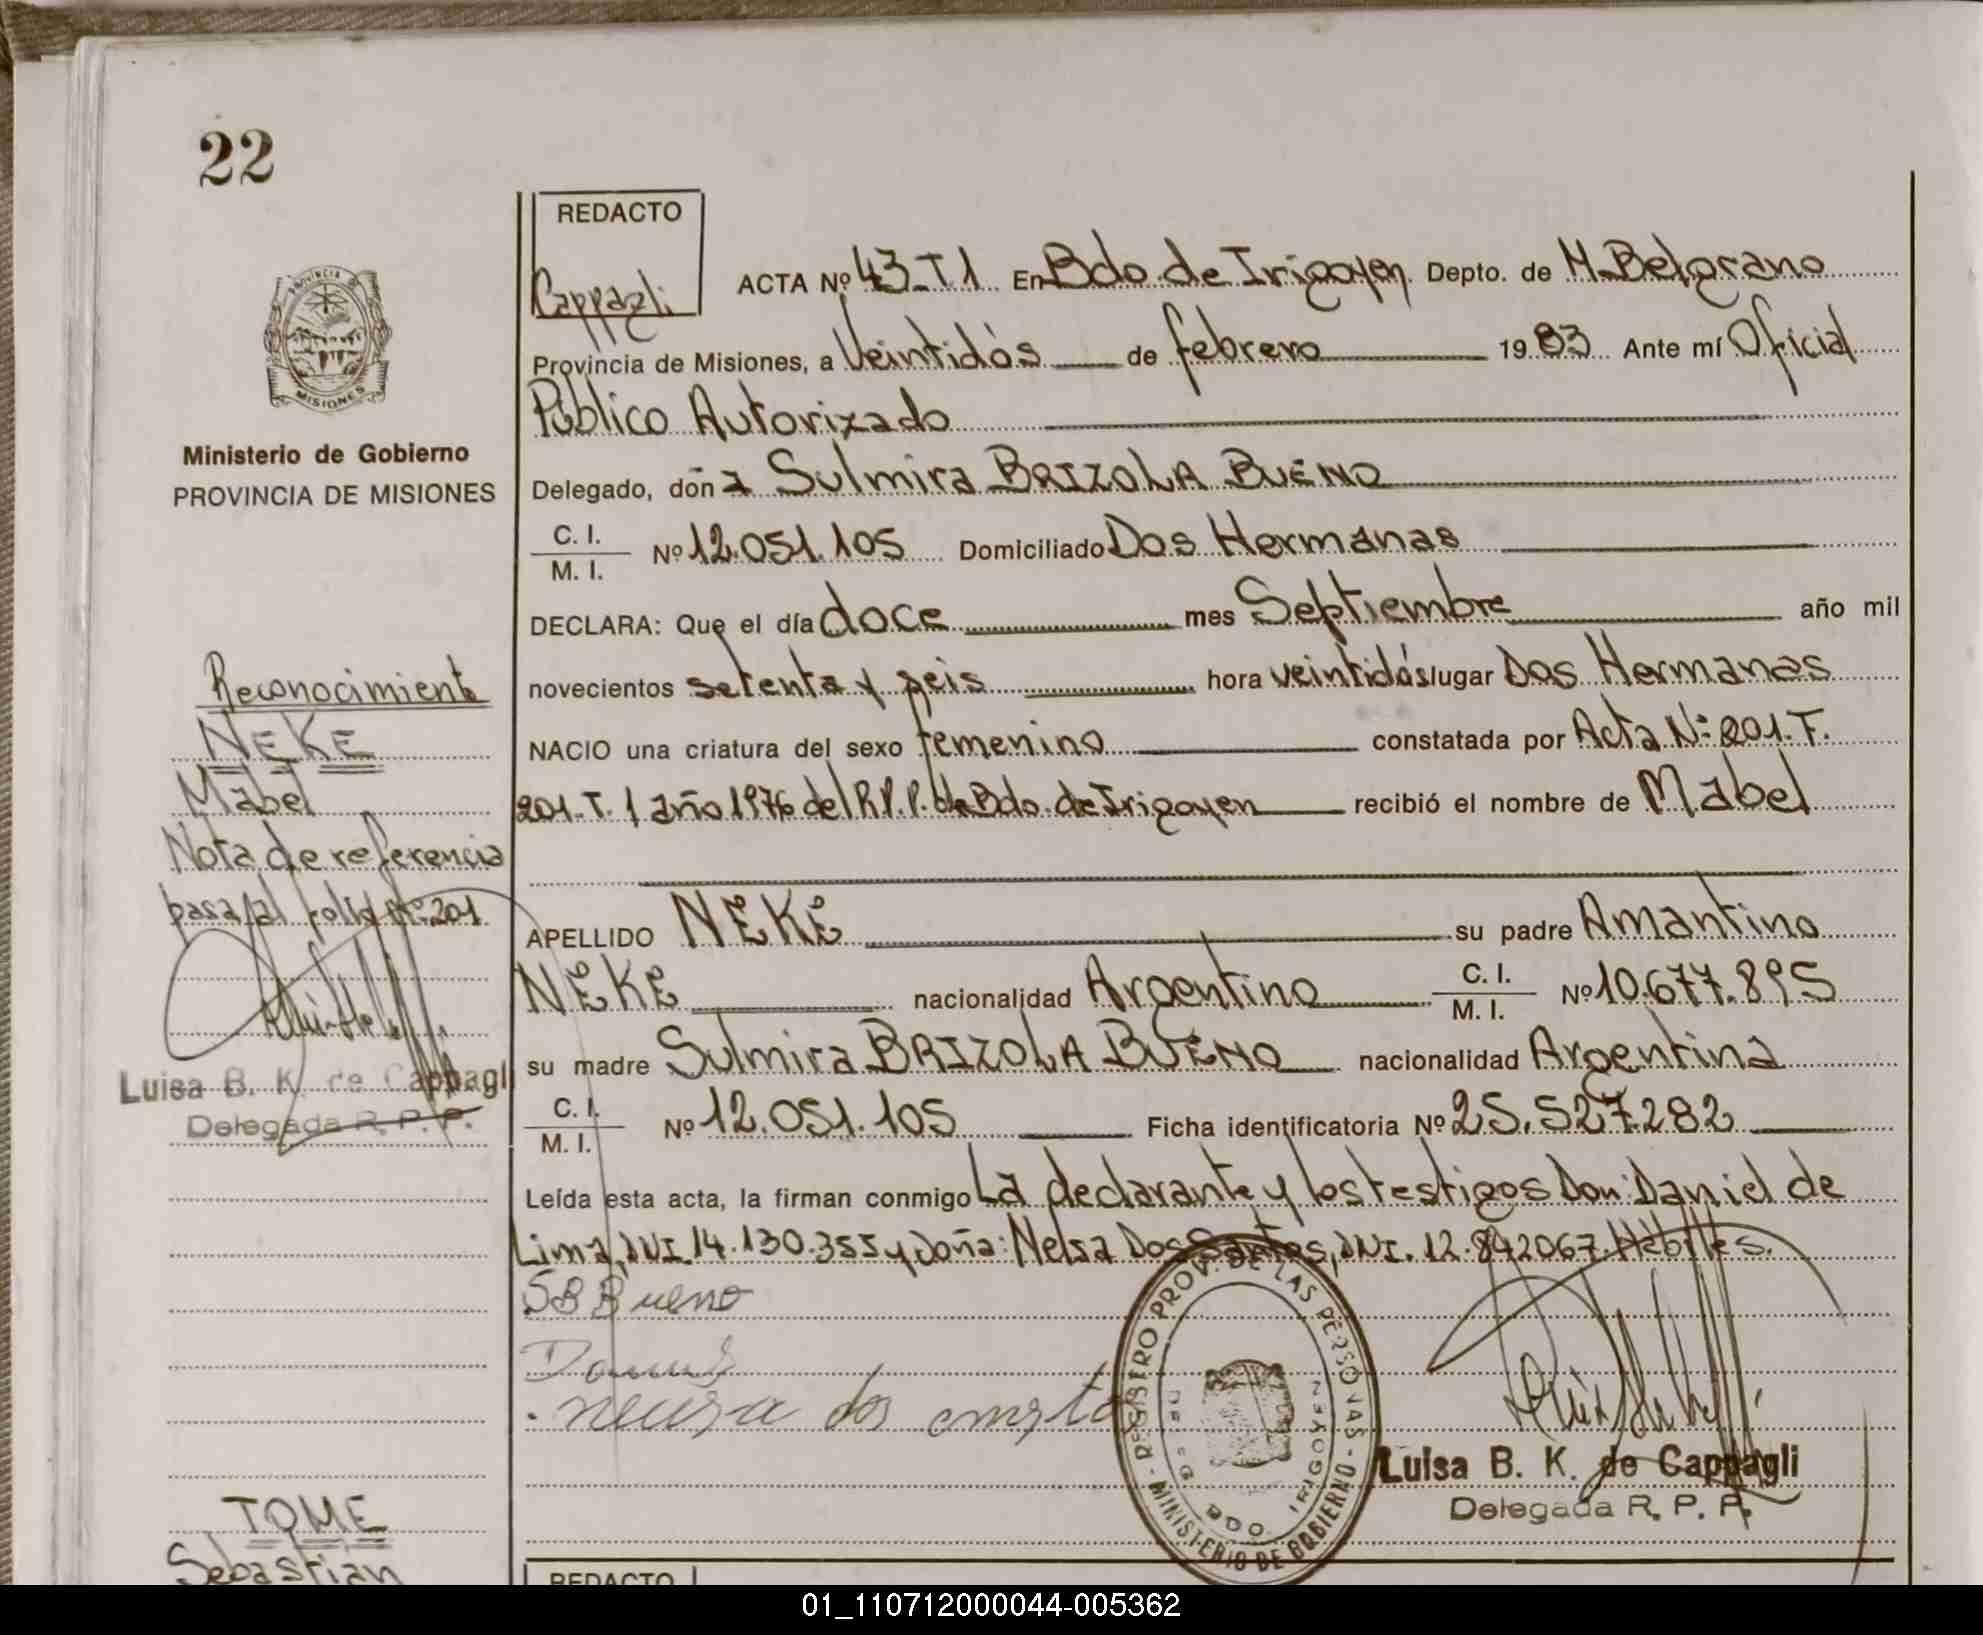 22
PROVINCIA
MISIONES
Ministerio de Gobierno
PROVINCIA DE MISIONES
Reconocimiento
NEKE
Mabel
Nota de referencia
pasa al folio Nº 201
Luisa B. K. de Cappagli
Delegada R. P. P.
TOME
Sebastian
REDACTO
Cappagli
ACTA Nº 43-T1 En Bdo. de Irigoyen Depto. de M. Belgrano
Provincia de Misiones, a Veintidós de febrero 1983 Ante mí Oficial
Público Autorizado
Delegado, doña Sulmira BRIZOLA BUENO
C. I.
M. I. Nº 12.051.105 Domiciliado Dos Hermanas
DECLARA: Que el día doce mes Septiembre año mil
novecientos setenta y seis hora veintidós lugar Dos Hermanas
NACIO una criatura del sexo femenino constatada por Acta Nº 201. F.
201. T. 1 año 1976 del R.P.P. de Bdo. de Irigoyen recibió el nombre de Mabel
APELLIDO NEKE su padre Amantino
NEKE nacionalidad Argentino C. I. M. I. Nº 10.677.895
su madre Sulmira BRIZOLA BUENO nacionalidad Argentina
C. I.
M. I. Nº 12.051.105 Ficha identificatoria Nº 25.527.282
Leída esta acta, la firman conmigo La declarante y los testigos Don: Daniel de
Lima, DNI. 14.130.355 y Doña: Nelsa Dos Santos, DNI. 12.842067. Hábiles.
SB Bueno
REGISTRO PROV. DE LAS PERSONAS - MINISTERIO DE GOBIERNO -
BDO. IRIGOYEN
Luisa B. K. de Cappagli
Delegada R. P. P.
REDACTO
01_110712000044-005362